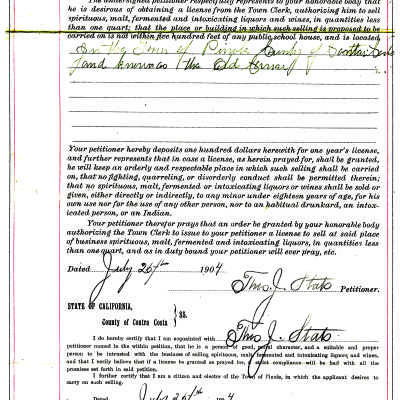 The undersigned petitioner respectfully represents to your honorable body that
he is desirous of obtaining a license from the Town Clerk, authorizing him to sell
spirituous, malt, fermented and intoxicating liquors and wines, in quantities less
than one quart; that the place or building in which such selling is proposed to be
carried on is not within five hundred feet of any public school house, and is located
In the Town of Pinole County of Contra Costa
and known as the Old Brewery
Your petitioner hereby deposits one hundred dollars herewith for one year's license,
and further represents that in case a license, as herein prayed for, shall be granted,
he will keep an orderly and respectable place in which such selling shall be carried
on, that no fighting, quarreling, or disorderly conduct shall be permitted therein;
that no spirituous, malt, fermented or intoxicating liquors or wines shall be sold or
given, either directly or indirectly, to any minor under eighteen years of age, for his
own use nor for the use of any other person, nor to an habitual drunkard, an intox-
icated person, or an Indian.
Your petitioner therefor prays that an order be granted by your honorable body
authorizing the Town Clerk to issue to your petitioner a license to sell at said place
of business spirituous, malt, fermented and intoxicating liquors, in quantities less
than one quart, and as in duty bound your petitioner will ever pray, etc.
Dated July 26th 1904
Thos. J. Stats
Petitioner.
STATE OF CALIFORNIA,
County of Contra Costa } SS.
Thos. J. Stats
I do hereby certify that I am acquainted with
petitioner named in the within petition, that he is a person of good, moral character, and a suitable and proper
person to be intrusted with the business of selling spirituous, malt, fermented and intoxicating liquors and wines,
and that I verily believe that if a license is granted as prayed for, a strict compliance will be had with all the
promises set forth in said petition.
I further certify that I am a citizen and elector of the Town of Pinole, in which the applicant desires to
carry on such selling.
Dated July 26th 1904